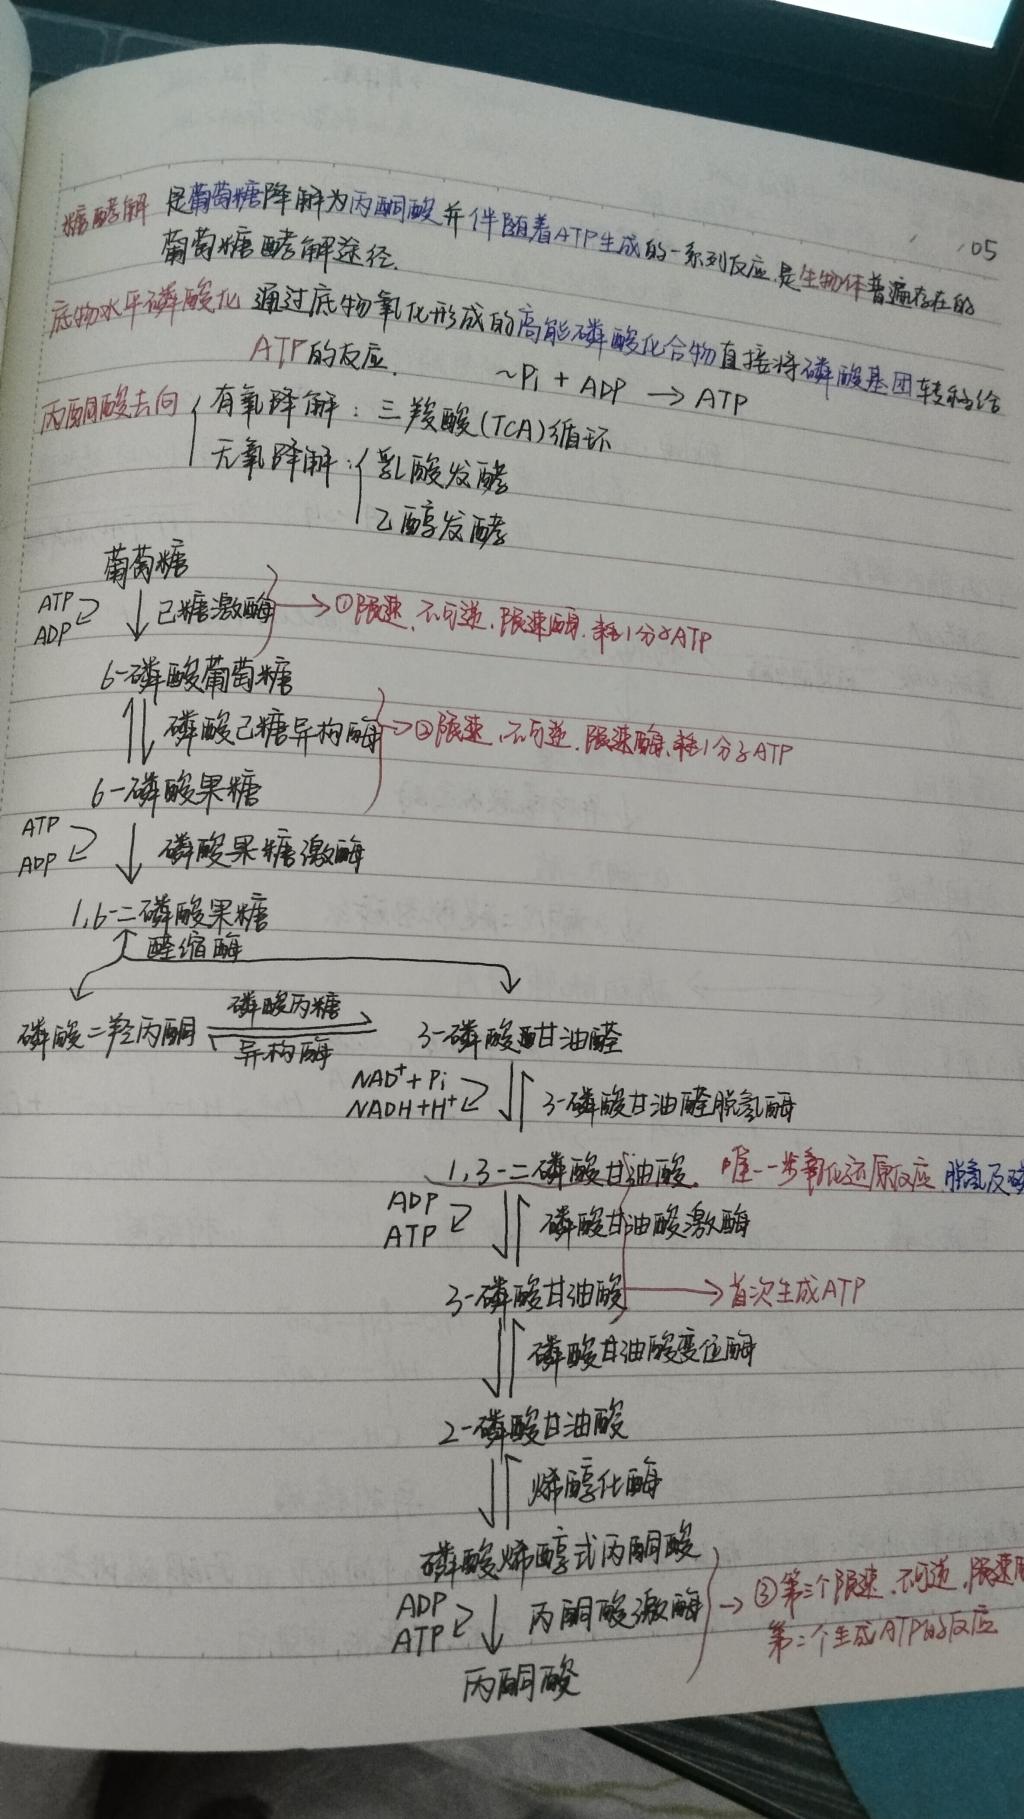 05
糖酵解 是葡萄糖降解为丙酮酸并伴随着ATP生成的一系列反应.是生物体普遍存在的
葡萄糖酵解途径.
底物水平磷酸化 通过底物氧化形成的高能磷酸化合物直接将磷酸基团转移给
ATP的反应. ~Pi + ADP → ATP
丙酮酸去向 有氧降解: 三羧酸(TCA)循环
无氧降解: 乳酸发酵
乙醇发酵
葡萄糖
ATP
ADP 己糖激酶 → ①限速、不可逆.限速酶.耗1分子ATP
6-磷酸葡萄糖
磷酸己糖异构酶 → ②限速、不可逆.限速酶.耗1分子ATP
6-磷酸果糖
ATP
ADP 磷酸果糖激酶
1,6-二磷酸果糖
醛缩酶
磷酸二羟丙酮 磷酸丙糖 3-磷酸甘油醛
异构酶
NAD⁺+Pi
NADH+H⁺ 3-磷酸甘油醛脱氢酶
1,3-二磷酸甘油酸. 唯一一步氧化还原反应.脱氢及
ADP
ATP 磷酸甘油酸激酶
3-磷酸甘油酸 → 首次生成ATP
磷酸甘油酸变位酶
2-磷酸甘油酸
烯醇化酶
磷酸烯醇式丙酮酸
ADP
ATP 丙酮酸激酶 → ③第三个限速、不可逆.限速
第二个生成ATP的反应
丙酮酸